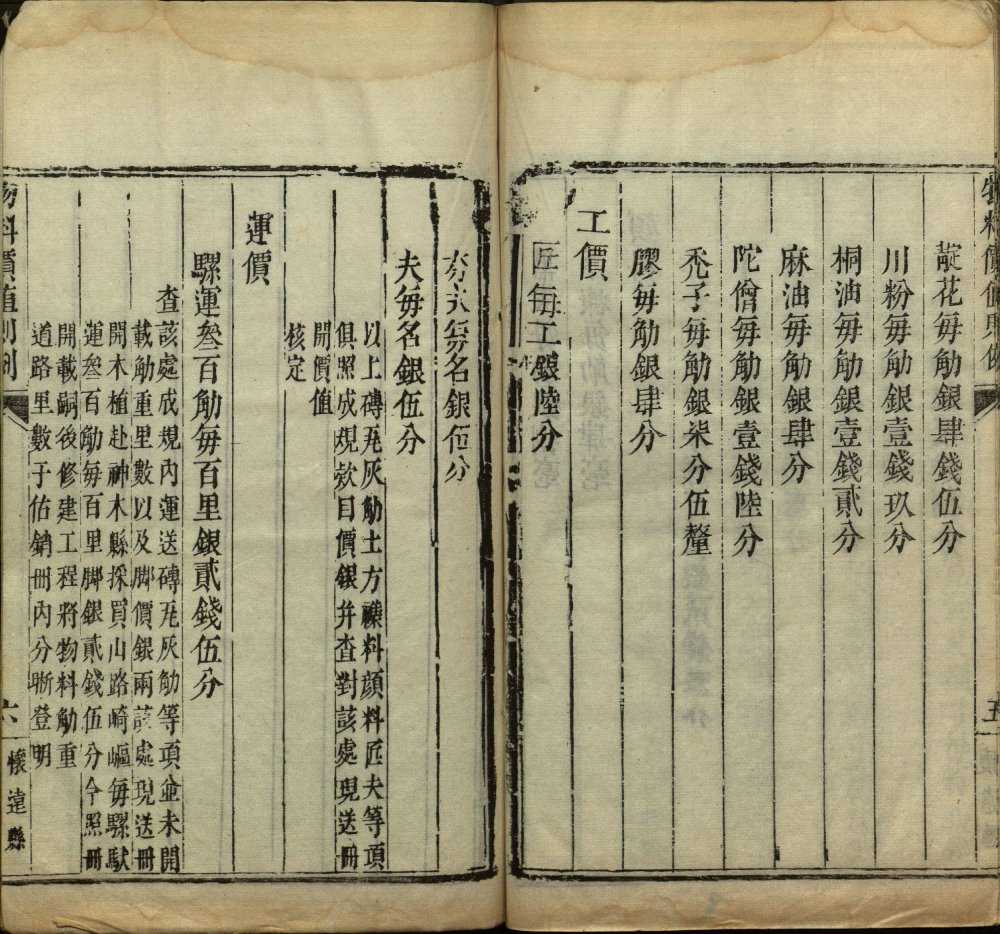 物料價值則例
五
靛花每觔銀肆錢伍分
川粉每觔銀壹錢玖分
桐油每觔銀壹錢貳分
麻油每觔銀肆分
陀僧每觔銀壹錢陸分
禿子每觔銀柒分伍釐
膠每觔銀肆分
工價
匠每工銀陸分
夯夫每名銀伍分
夫每名銀伍分
以上磚瓦灰觔土方襍料顔料匠夫等項
俱照成規欵目價銀并查對該處現送冊
開價值
核定
運價
騾運叁百觔每百里銀貳錢伍分
查該處成規內運送磚瓦灰觔等項並未開
載觔重里數以及脚價銀兩該處現送冊
開木植赴神木縣採買山路崎嶇每騾馱
運叁百觔每百里脚銀貳錢伍分今照冊
開載嗣後修建工程將物料觔重
道路里數于估銷冊內分晰登明
物料價值則例
六
懷遠縣